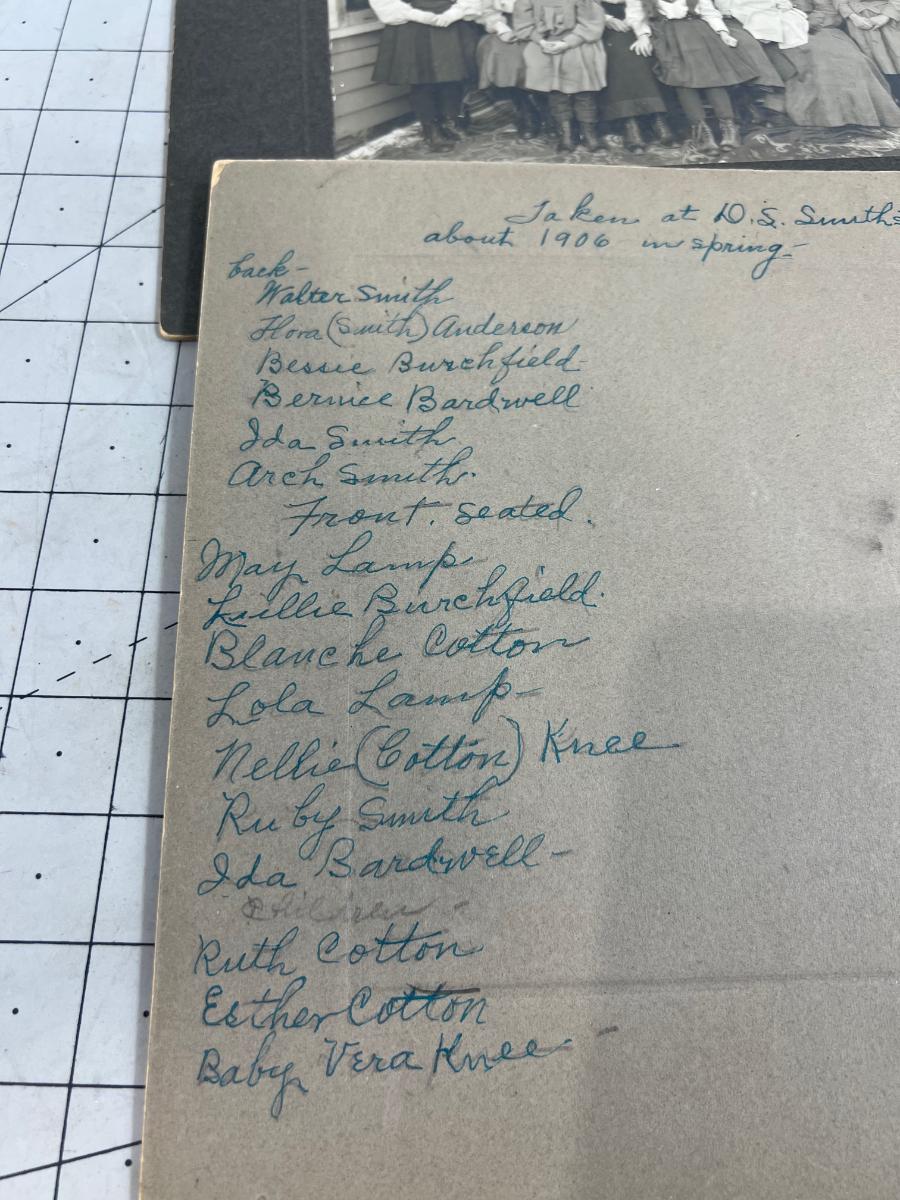 Taken at D.S. Smith's
about 1906 in spring-
back-
Walter Smith
Flora (Smith) Anderson
Bessie Burchfield
Bernice Bardwell
Ida Smith
Arch Smith.
Front. seated.
May Lamp
Lillie Burchfield.
Blanche Cotton
Lola Lamp-
Nellie (Cotton) Knee
Ruby Smith
Ida Bardwell-
Children -
Ruth Cotton
Esther Cotton
Baby Vera Knee-